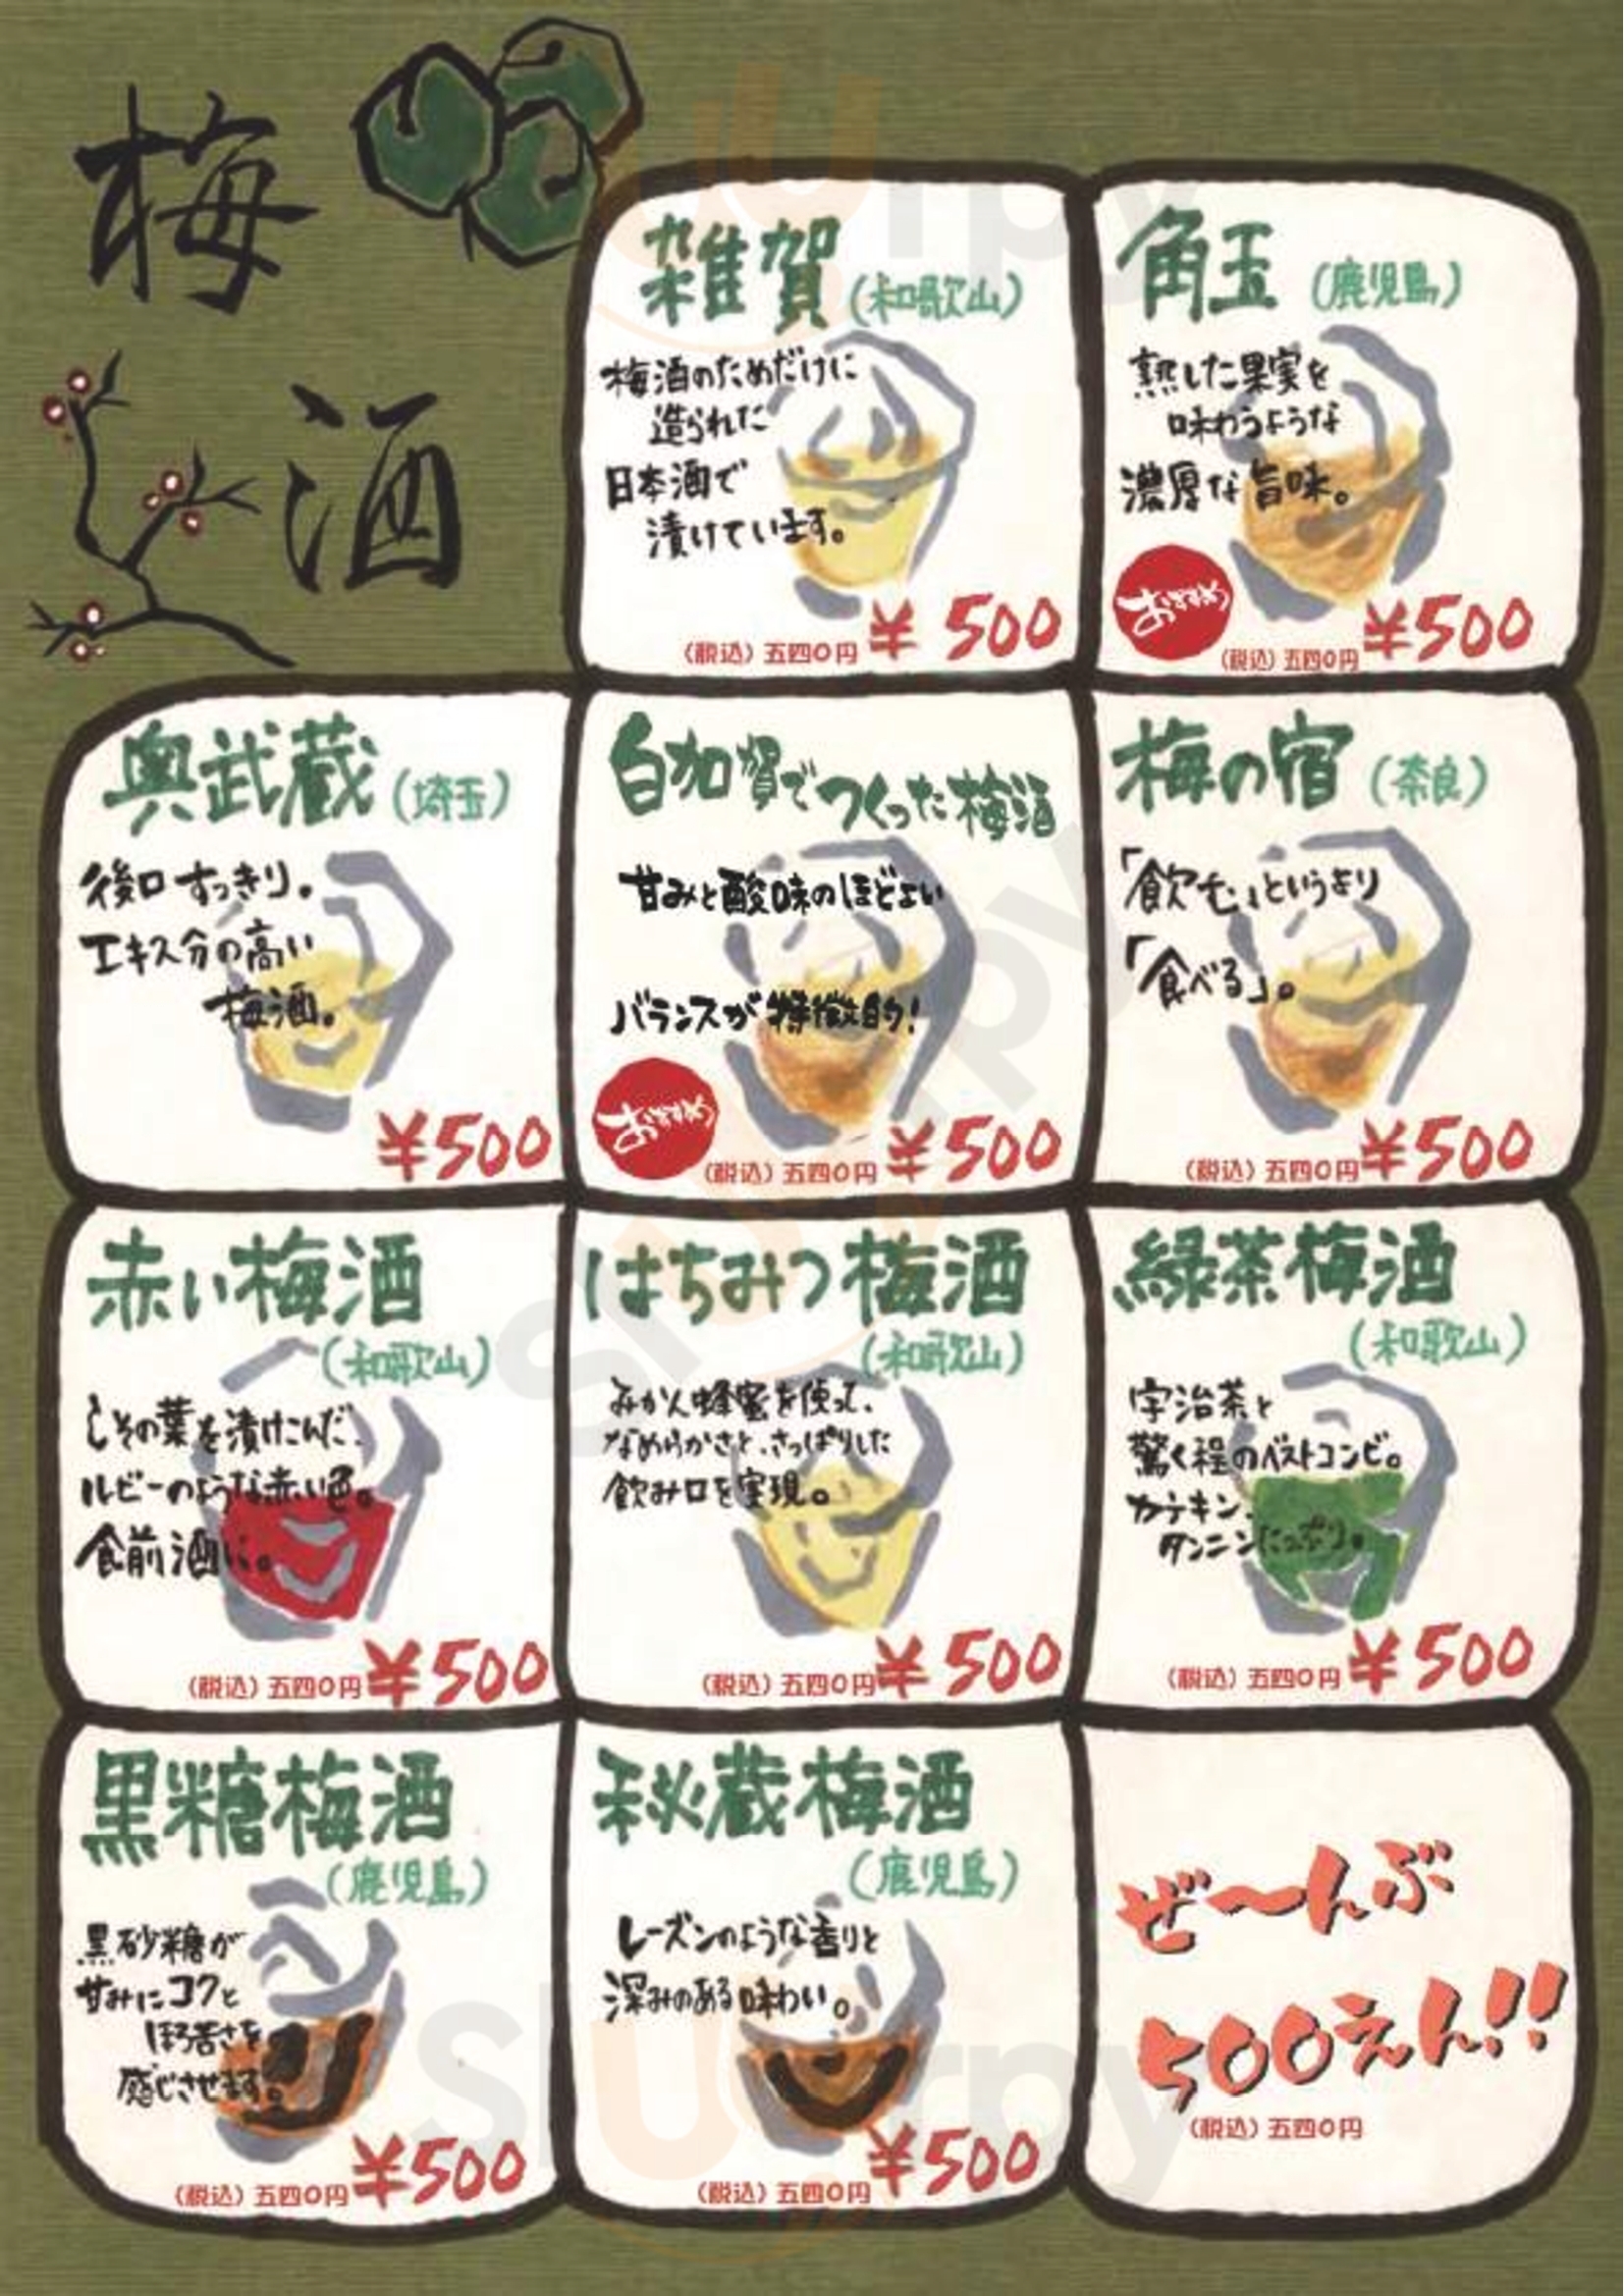 梅酒
雑賀(和歌山)
梅酒のためだけに
造られた
日本酒で
漬けています。
(税込)五四〇円 ¥500
角玉(鹿児島)
熟した果実を
味わうような
濃厚な旨味。
おすすめ
(税込)五四〇円 ¥500
奥武蔵(埼玉)
後口すっきり。
エキス分の高い
梅酒。
¥500
白加賀でつくった梅酒
甘みと酸味のほどよい
バランスが特徴的!
おすすめ
(税込)五四〇円 ¥500
梅の宿(奈良)
「飲む」というより
「食べる」。
(税込)五四〇円 ¥500
赤い梅酒
(和歌山)
しその葉を漬けこんだ、
ルビーのような赤い色。
食前酒に。
(税込)五四〇円 ¥500
はちみつ梅酒
(和歌山)
みかん蜂蜜を使って、
なめらかさと、さっぱりした
飲み口を実現。
(税込)五四〇円 ¥500
緑茶梅酒
(和歌山)
宇治茶と
驚く程のベストコンビ。
カテキン、
タンニンたっぷり。
(税込)五四〇円 ¥500
黒糖梅酒
(鹿児島)
黒砂糖が
甘みにコクと
ほろ苦さを
感じさせます。
(税込)五四〇円 ¥500
秘蔵梅酒
(鹿児島)
レーズンのような香りと
深みのある味わい。
(税込)五四〇円 ¥500
ぜ〜んぶ
500えん!!
(税込)五四〇円
slurpy
slurpy
slurpy